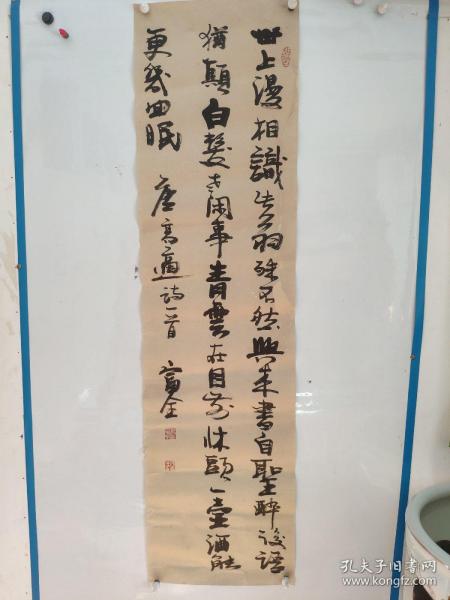 世上漫相識此翁殊不然興來書自聖醉後語
猶顛白髮老閑事青雲在目前床頭一壺酒能
更幾回眠 唐高適詩一首 富全
孔夫子旧书网
www.kongfz.com